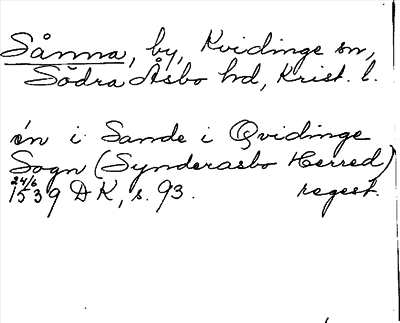 Sånna, by, Kvidinge sn,
Södra Åsbo hd, Krist. l.
én i Sande i Qvidinge
Sogn (Synderasbo Herred)
24/6
1539 DK, s. 93. regest.